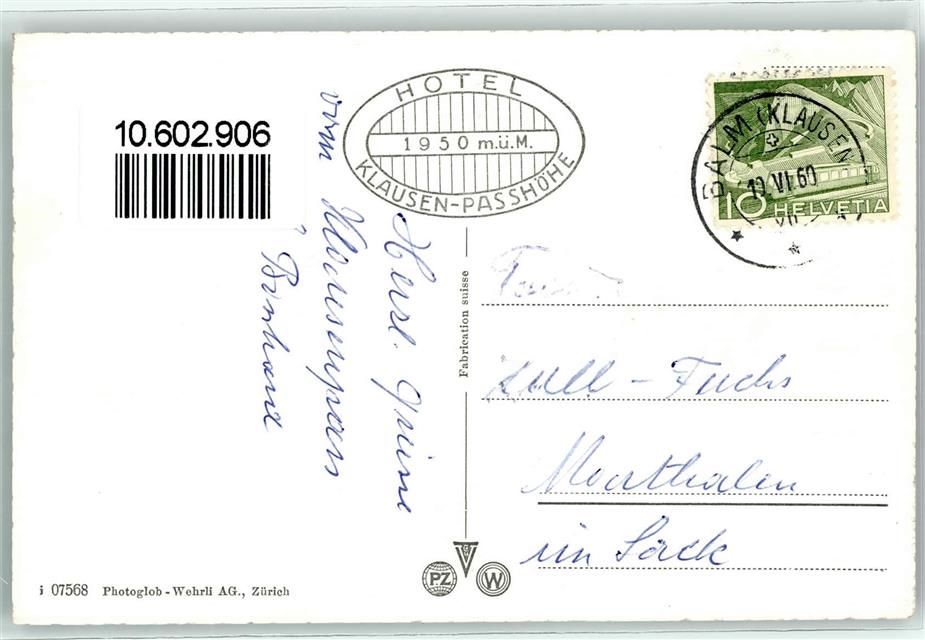 10.602.906
HOTEL
1950 m.ü.M.
KLAUSEN-PASSHÖHE
BALM (KLAUSEN
VI 60
10 HELVETIA
Herzl. Grüsse
vom Klausenpass
Fabrication suisse
Kull - Fuchs
Marthalen
im Sack
PZ
W
i 07568 Photoglob-Wehrli AG., Zürich